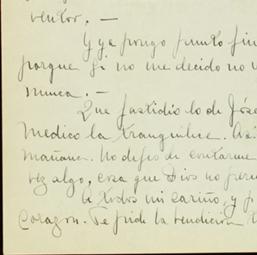 ventor. —
Y ya pongo punto fin
porque si no me decido no
nunca. —
Que fastidio lo de Jose
Medico la tranquilice.
mañana. No dejes de contarme
vez algo, cosa que Dios no
A todos mi cariño, y
corazon. Te pide la bendición